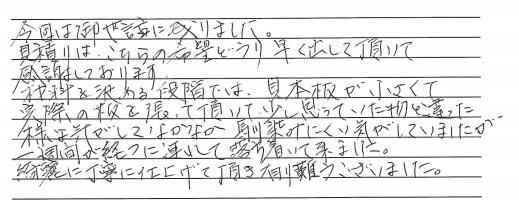 今回は御世話になりました。
見積りは、こちらの希望どうり早く出して頂いて
感謝しております。
材料を決める段階では、見本板が小さくて
実際の板を張って頂いて少し思っていた物と違った
様な気がしてなかなか馴染みにくい気がしていましたが
一週間が経つに連れて落ち着いて来ました。
綺麗に丁寧に仕上げて頂き有難うございました。